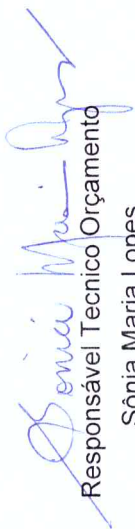 Sônia Maria Lopes
Responsável Tecnico Orçamento
Sônia Maria Lopes